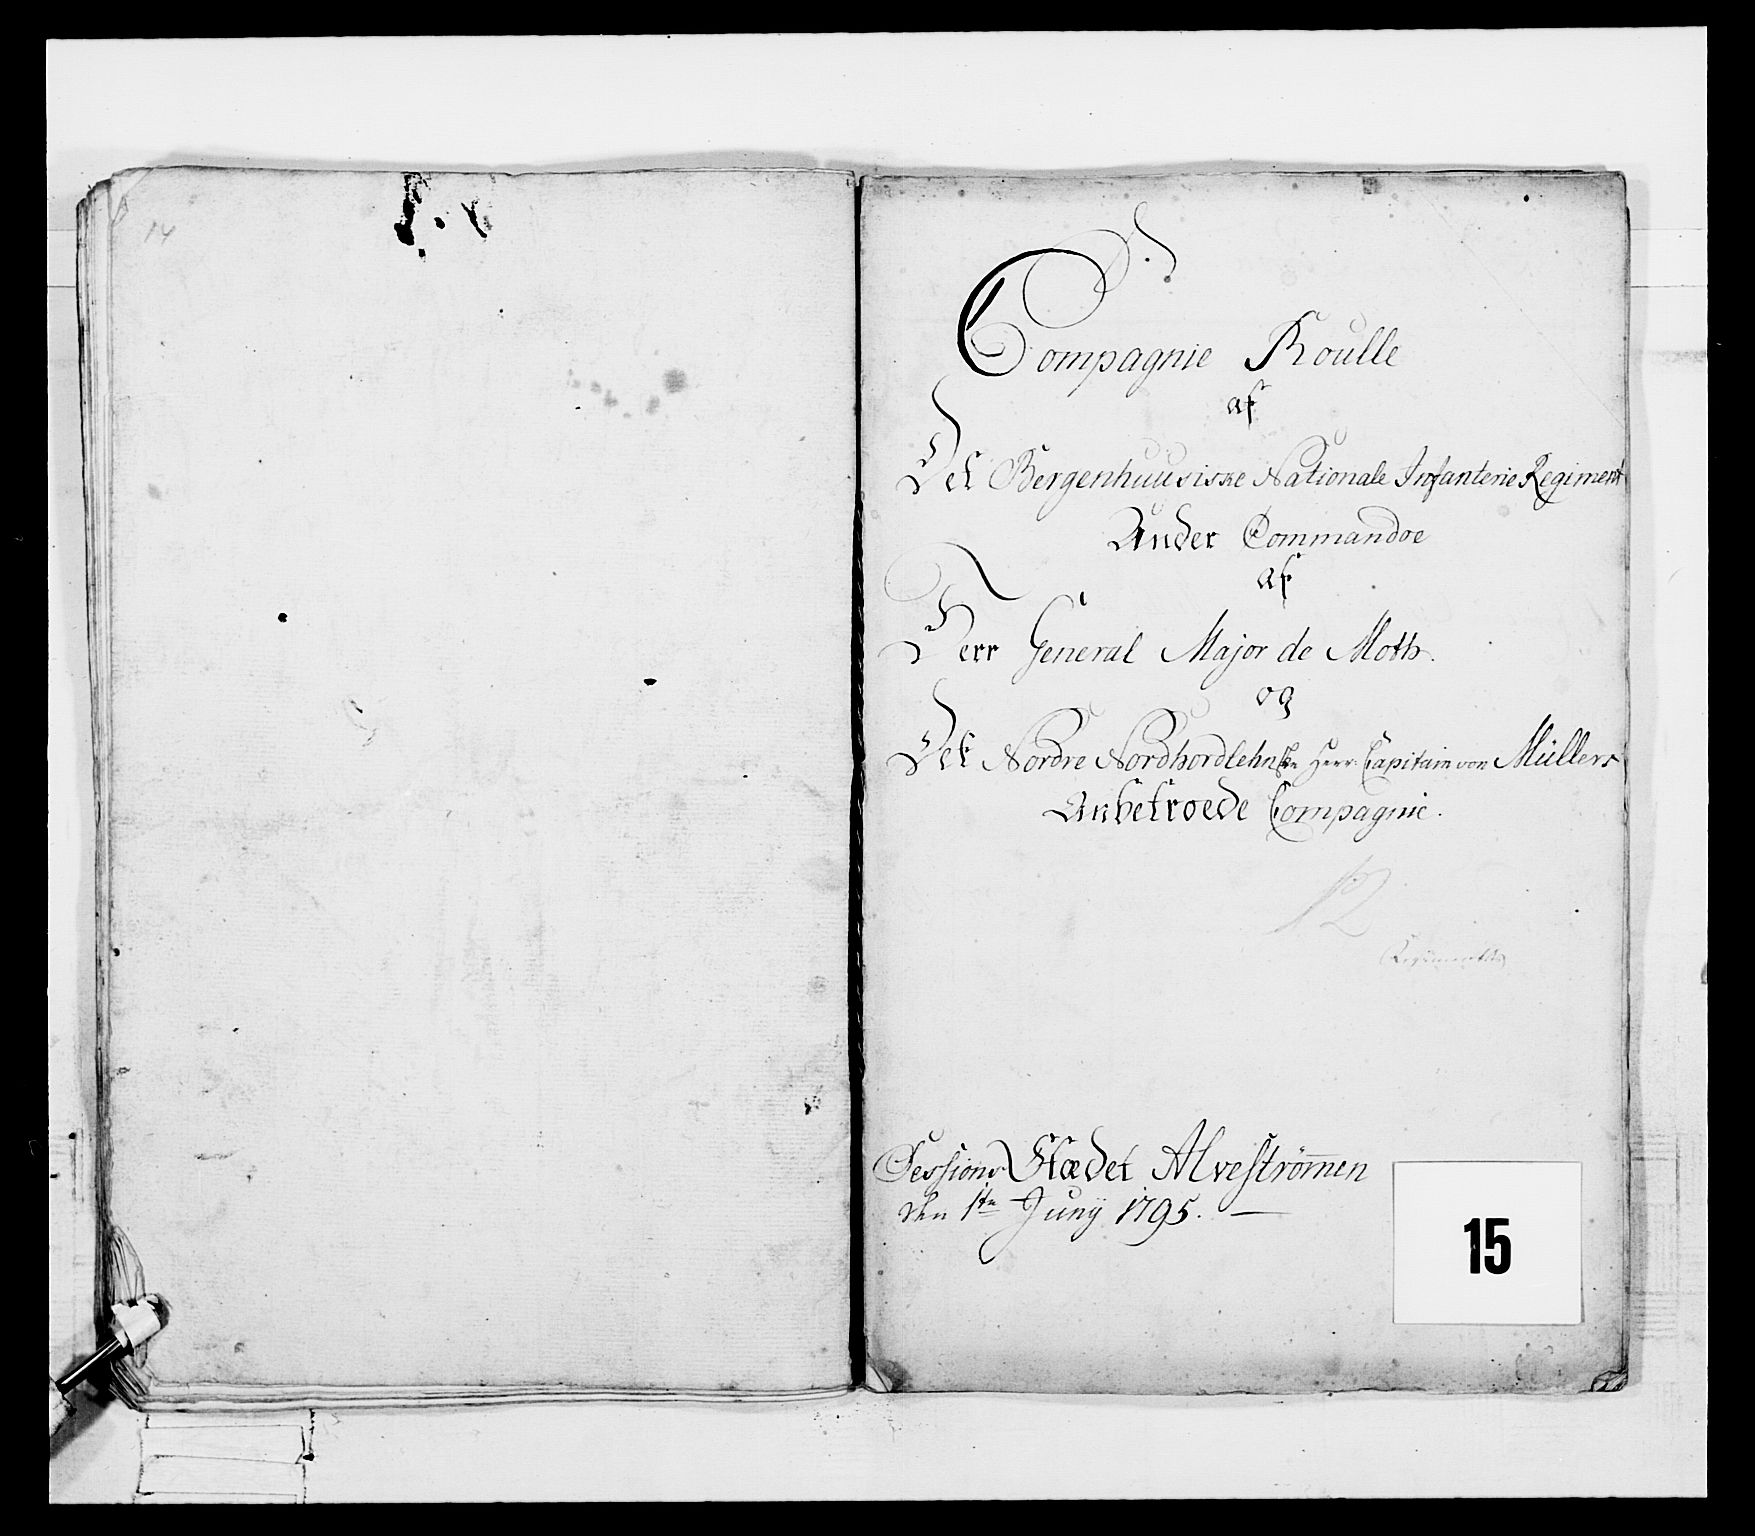 14
Compagnie Roulle
af
Det Bergenhuusiske Nationale Infanterie Regiment
Under Commandoe
af
Herr General Major de Moth.
og
Det Nordre Nordhordlehnske Herr Capitain von Müllers
Anbetroede Compagnie.
12
Regimentts
Sessions Stædet Alveström̅en
den 1ste Junÿ 1795. —
15